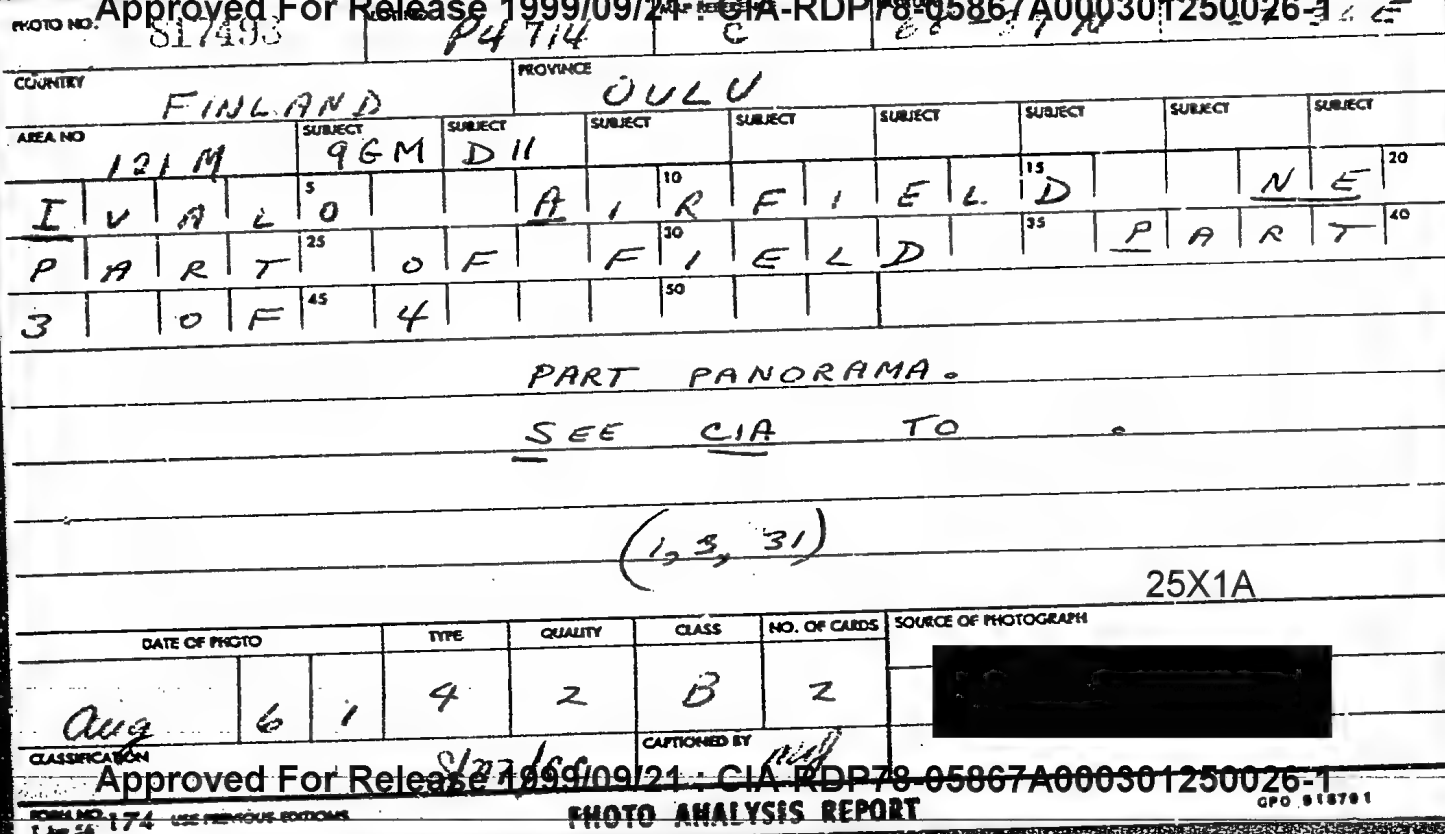 Approved For Release 1999/09/21 : CIA-RDP78-05867A000301250026-1
PHOTO NO. 817493 P4 714 C
COUNTRY FINLAND PROVINCE OULU
AREA NO 121 M SUBJECT 9GM SUBJECT D11 SUBJECT SUBJECT SUBJECT SUBJECT SUBJECT SUBJECT
IVALO 5 AIRFIELD 10 15 NE 20
PART 25 OF FIELD 30 35 PART 40
3 OF 45 4 50
PART PANORAMA.
SEE CIA TO .
(1, 3, 31)
25X1A
DATE OF PHOTO TYPE QUALITY CLASS NO. OF CARDS SOURCE OF PHOTOGRAPH
Aug 6 1 4 2 B 2
CLASSIFICATION CAPTIONED BY
Approved For Release 1999/09/21 : CIA-RDP78-05867A000301250026-1
FORM NO. 174 USE PREVIOUS EDITIONS PHOTO ANALYSIS REPORT GPO 918791